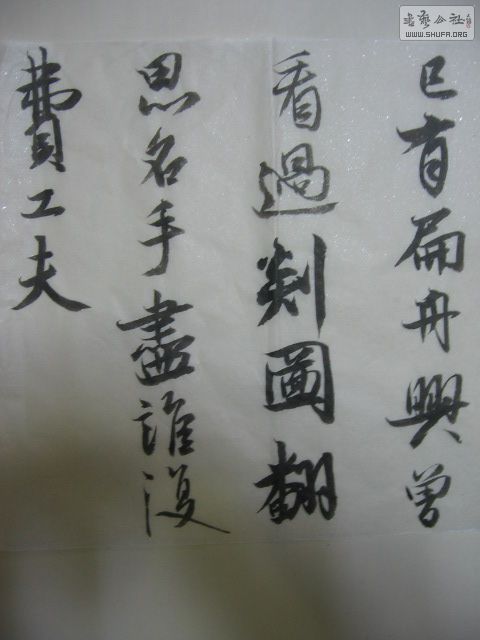 書藝公社
WWW.SHUFA.ORG
已有扁舟興曾
看過剡圖翻
思名手盡誰復
費工夫